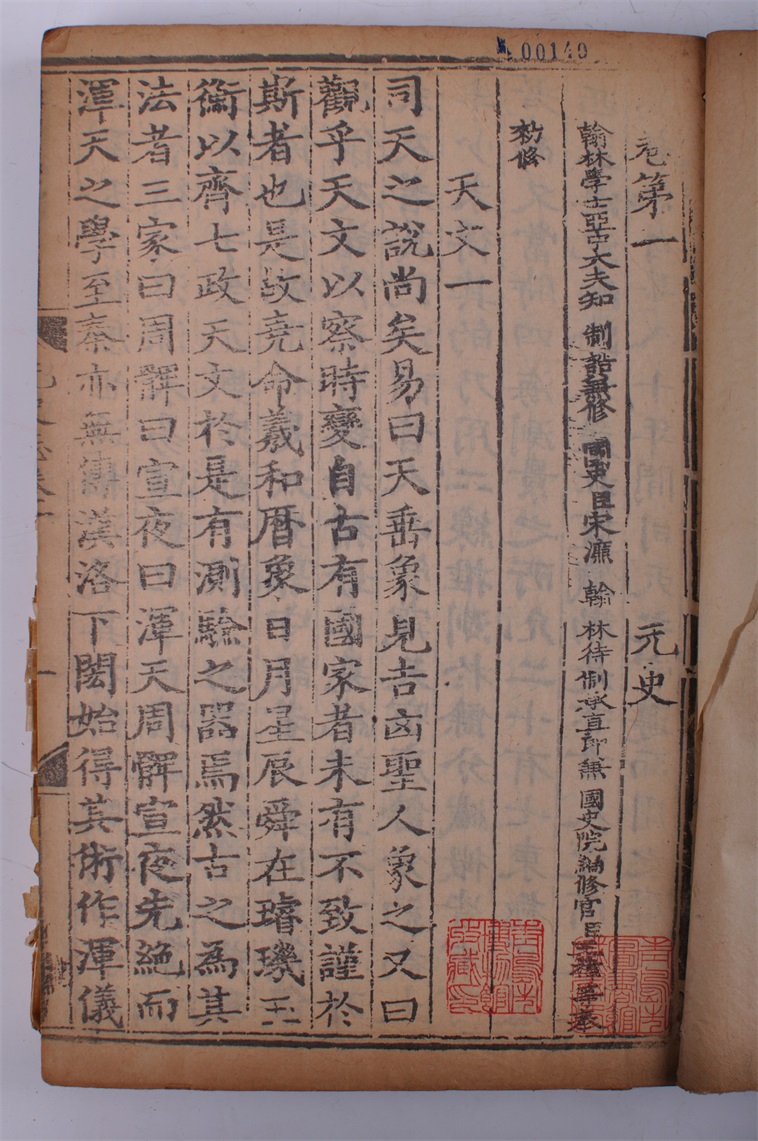 00140
志卷第一 元史
翰林學士亞中大夫知 制誥兼修 國史臣宋濂 翰 林待制承直郎兼 國史院編修官臣王禕等奉
勑修
天文一
司天之說尚矣易曰天垂象見吉凶聖人象之又曰
觀乎天文以察時變自古有國家者未有不致謹於
斯者也是故堯命羲和曆象日月星辰舜在璿璣玉
衡以齊七政天文於是有測驗之器焉然古之為其
法者三家曰周髀曰宣夜曰渾天周髀宣夜先絶而
渾天之學至秦亦無傳漢洛下閎始得其術作渾儀
元史志卷一